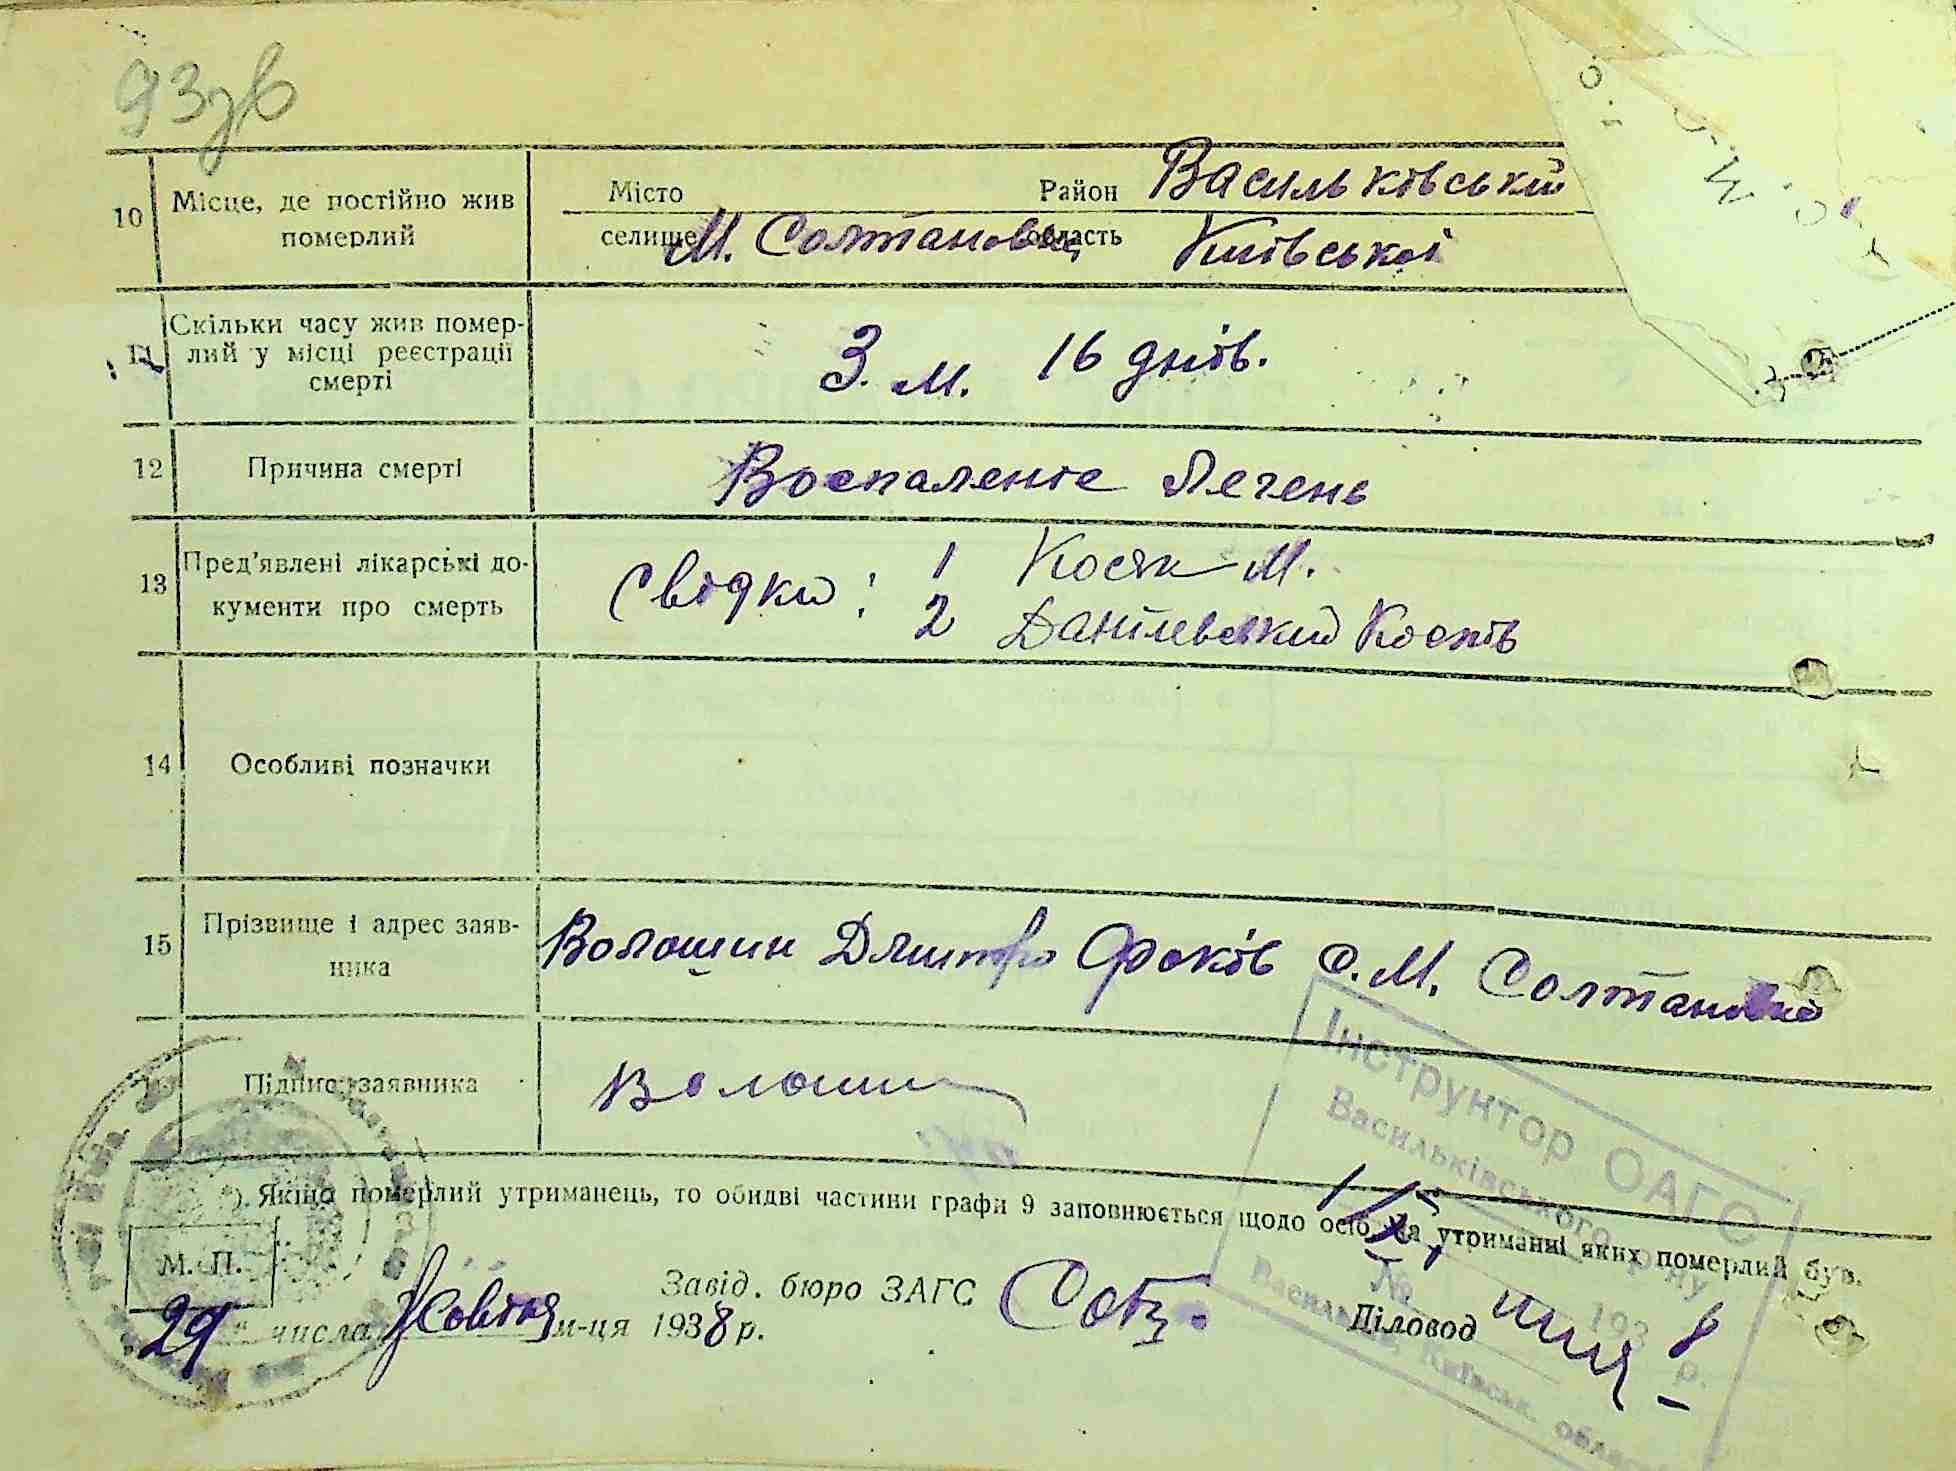 93зв
10 Місце, де постійно жив Місто Район Васильківський
померлий селище М. Солтановка область Київської
Скільки часу жив помер-
11 лий у місці реєстрації 3. м. 16 днів.
смерті
12 Причина смерті Воспаленіє Легень
13 Пред'явлені лікарські до- Свідки: 1 Косяк М.
кументи про смерть 2 Данілевський Костів
14 Особливі позначки
15 Прізвище і адрес заяв- Волошин Дмитро Фоків с. М. Солтановка
ника
Підпис заявника Волошин
Інструктор ОАГС
Васильківського р-ну
№ 193 8 р.
Васильків, Київськ. област
*). Якщо померлий утриманець, то обидві частини графи 9 заповнюється щодо осіб, на утриманні яких померлий був.
М. П.
Завід. бюро ЗАГС Діловод
29 " числа Жовтня м-ця 1938 р.